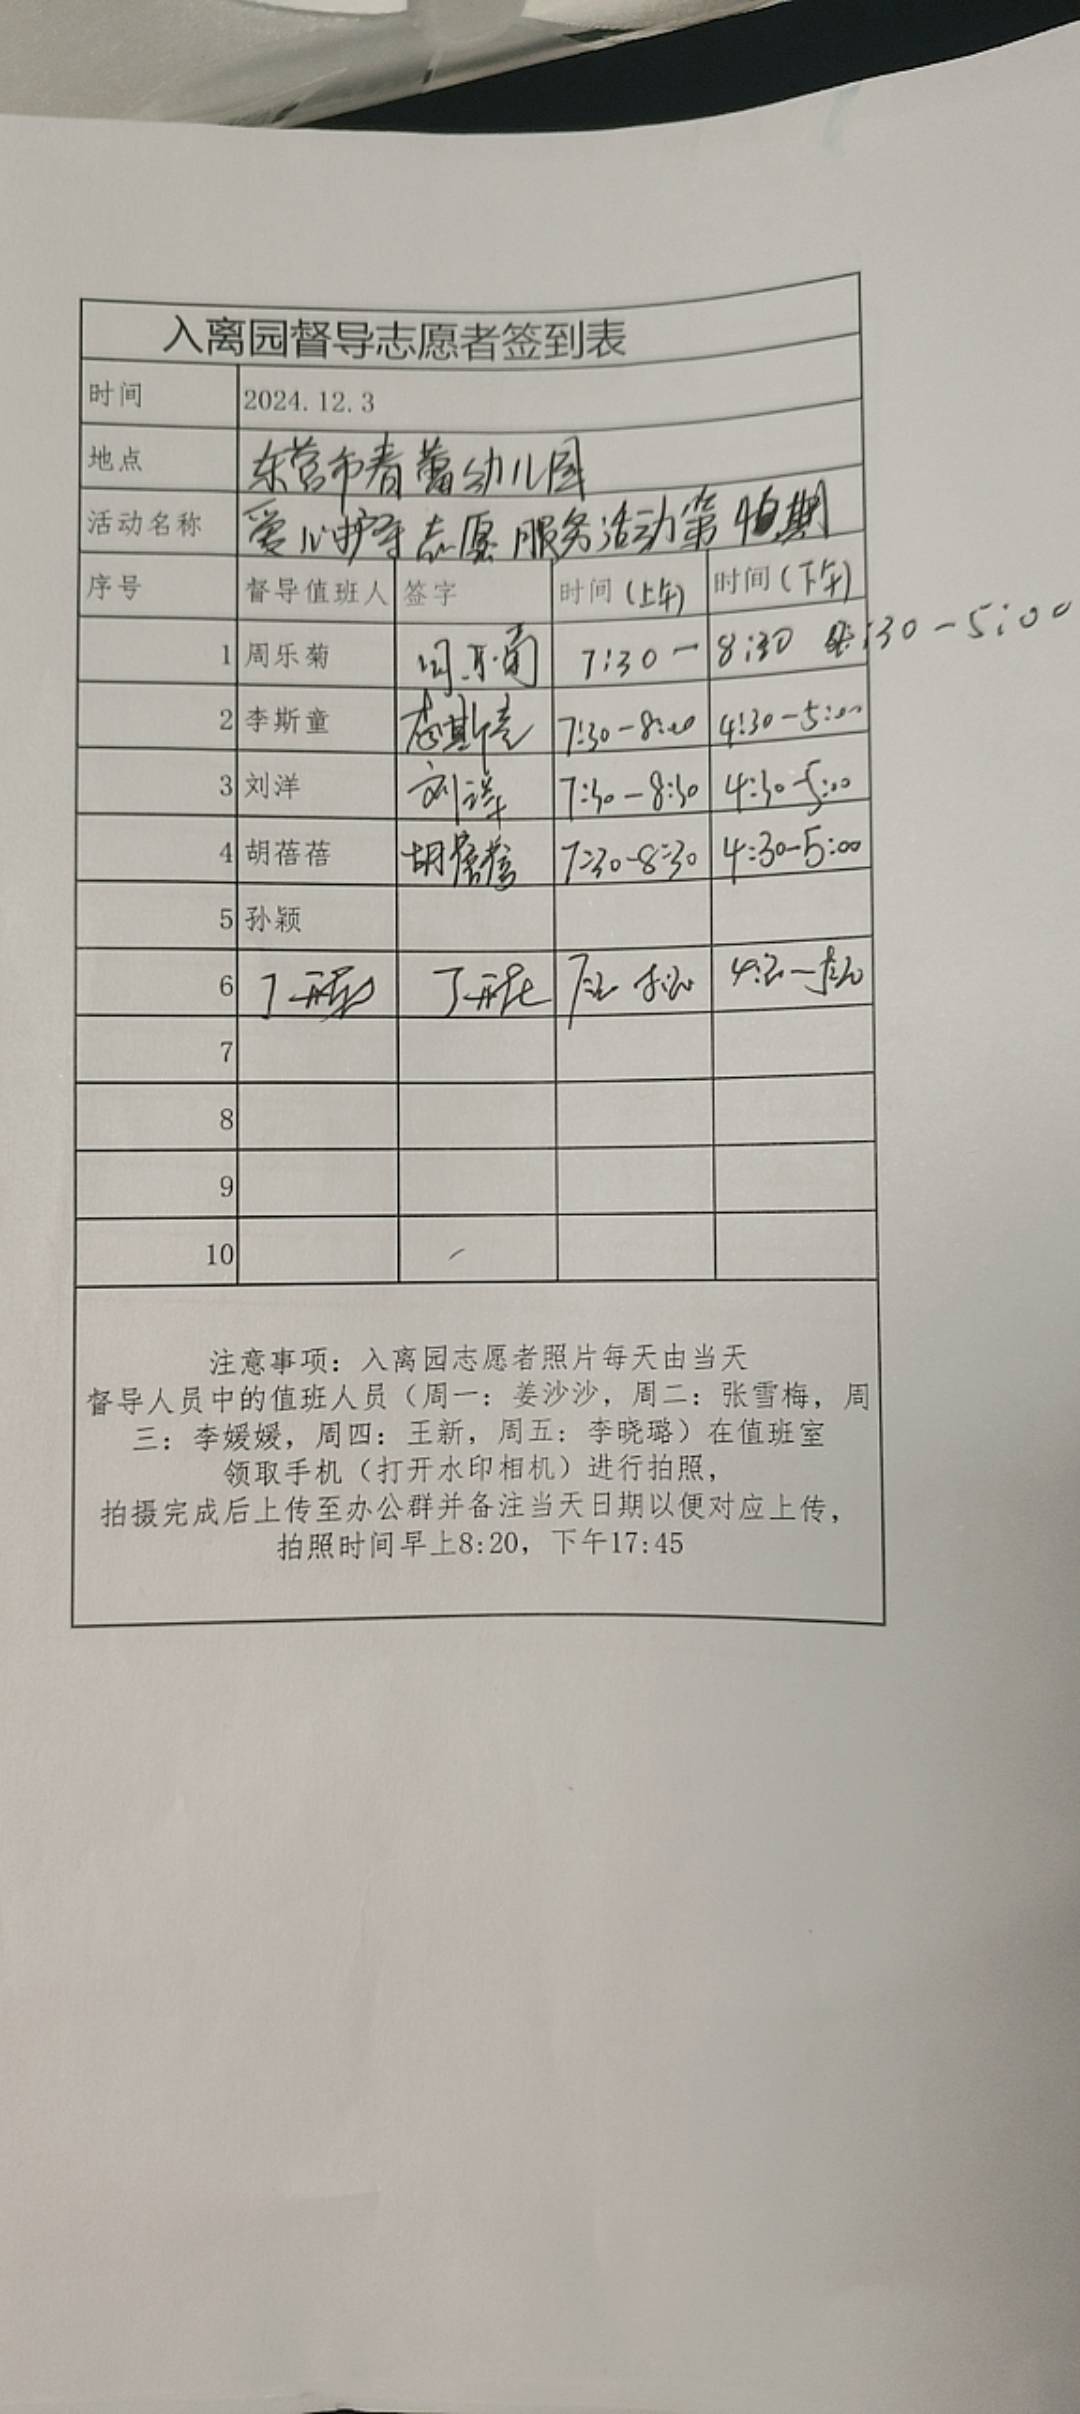 入离园督导志愿者签到表
时间 2024.12.3
地点 东营市春蕾幼儿园
活动名称 爱心护守志愿服务活动第 期
序号 督导值班人 签字 时间(上午) 时间(下午)
1 周乐菊 周乐菊 7:30-8:30 4:30-5:00
2 李斯童 李斯童 7:30-8:00 4:30-5:00
3 刘洋 刘洋 7:30-8:30 4:30-5:00
4 胡蓓蓓 胡蓓蓓 7:30-8:30 4:30-5:00
5 孙颖
6
7
8
9
10
注意事项：入离园志愿者照片每天由当天
督导人员中的值班人员（周一：姜沙沙，周二：张雪梅，周
三：李媛媛，周四：王新，周五：李晓璐）在值班室
领取手机（打开水印相机）进行拍照，
拍摄完成后上传至办公群并备注当天日期以便对应上传，
拍照时间早上8:20，下午17:45